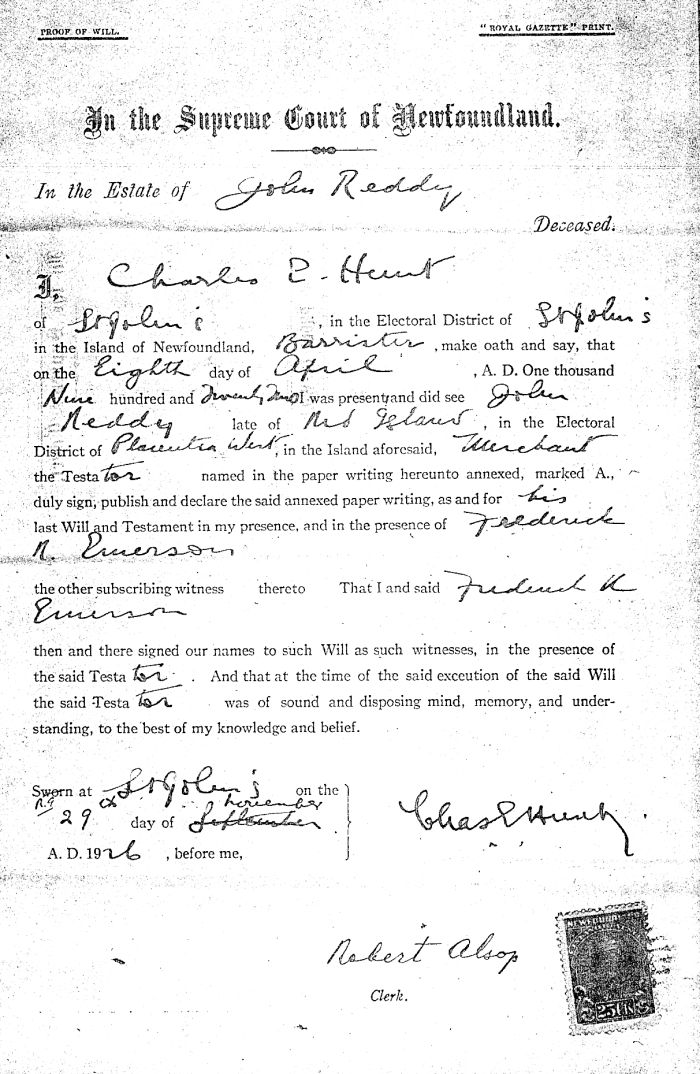 PROOF OF WILL.
"ROYAL GAZETTE" PRINT.
In the Supreme Court of Newfoundland.
In the Estate of John Reddy
Deceased.
I, Charles E. Hunt
of St John's , in the Electoral District of St John's
in the Island of Newfoundland, Barrister , make oath and say, that
on the Eighth day of April , A. D. One thousand
Nine hundred and I was present and did see John
Reddy late of Red Island , in the Electoral
District of Placentia West, in the Island aforesaid, Merchant
the Testator named in the paper writing hereunto annexed, marked A.,
duly sign, publish and declare the said annexed paper writing, as and for his
last Will and Testament in my presence, and in the presence of Frederick
R. Emerson
the other subscribing witness thereto That I and said Frederick R
Emerson
then and there signed our names to such Will as such witnesses, in the presence of
the said Testator . And that at the time of the said execution of the said Will
the said Testator was of sound and disposing mind, memory, and under-
standing, to the best of my knowledge and belief.
Sworn at St John's on the
29 day of September november
A. D. 1926 , before me,
Chas E Hunt
Robert Alsop
Clerk.